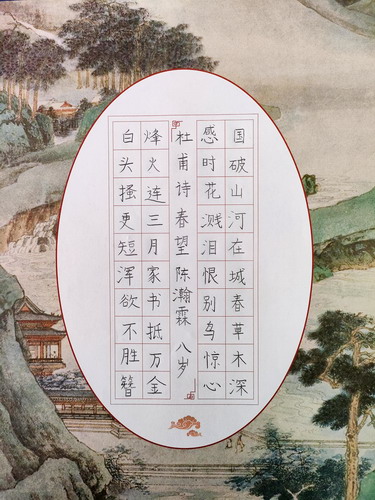 国破山河在城春草木深
感时花溅泪恨别鸟惊心
杜甫诗春望陈瀚霖 八岁
烽火连三月家书抵万金
白头搔更短浑欲不胜簪